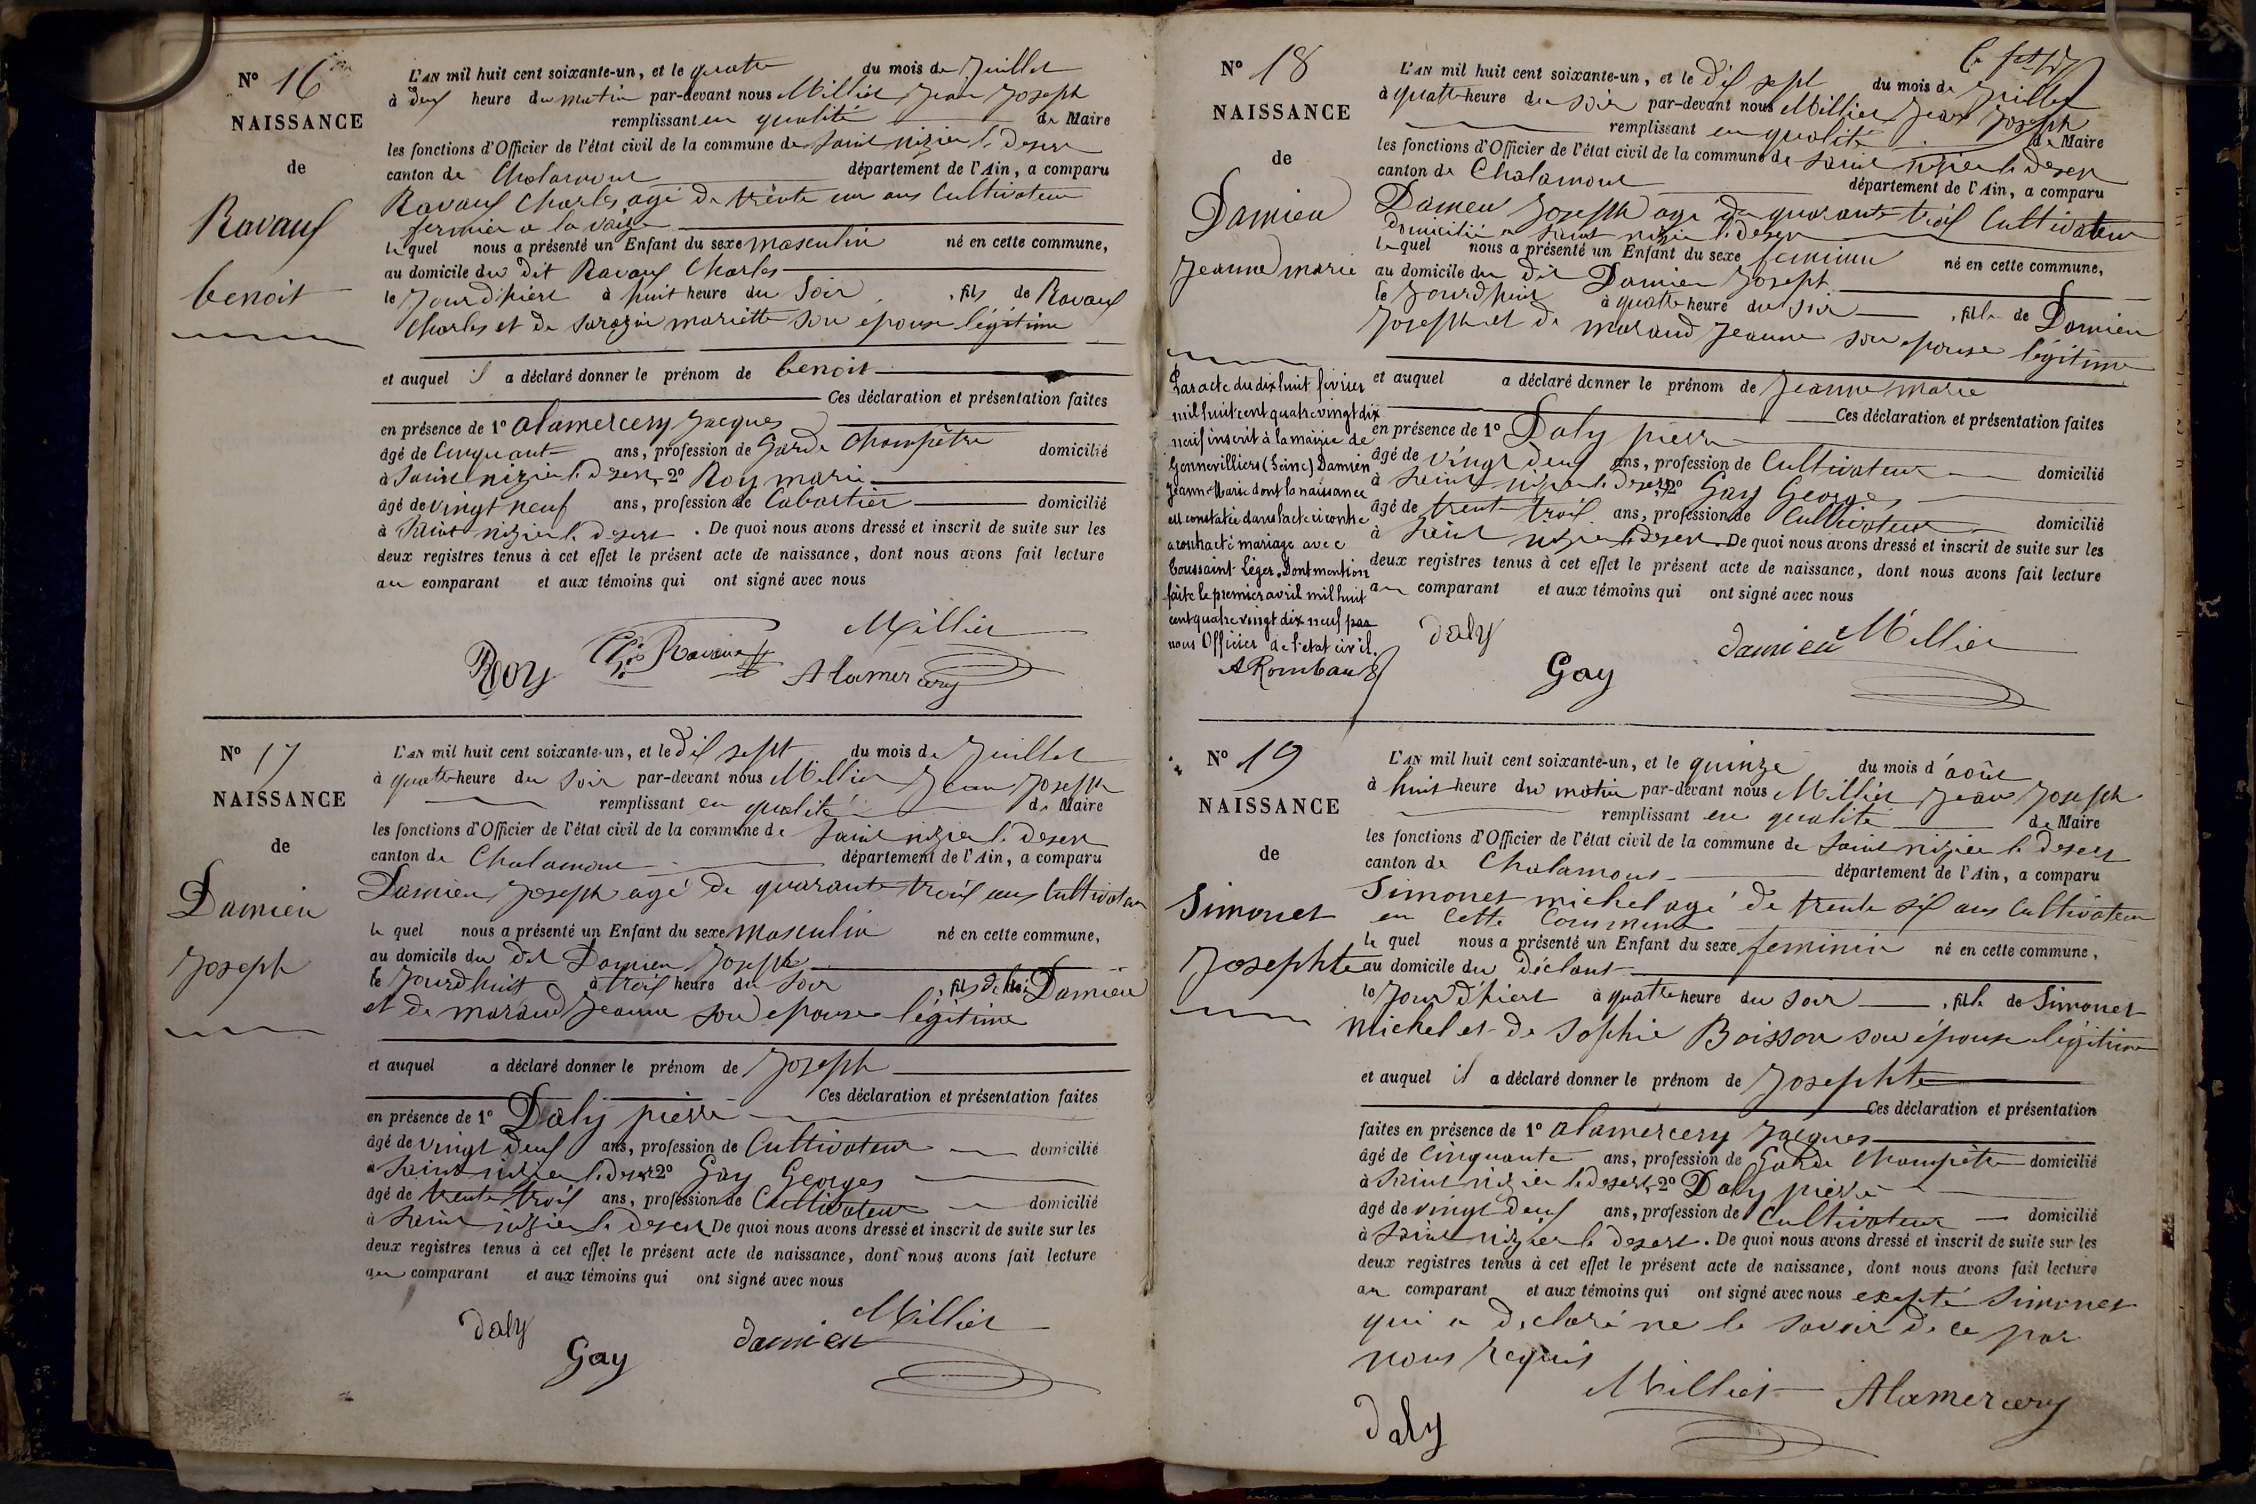 N° 16
NAISSANCE
de
Ravaux
benoit
L'AN mil huit cent soixante-un, et le quatre du mois de Juillet
à deux heure du matin par-devant nous Millier Jean Joseph
remplissant en qualité de Maire
les fonctions d'Officier de l'état civil de la commune de saint nizier le desert
canton de Chalamont département de l'Ain, a comparu
Ravaux Charles agé de trente un ans Cultivateur
fermier a la
le quel nous a présenté un Enfant du sexe masculin né en cette commune,
au domicile du dit Ravaux Charles
le Jourd'hiert à huit heure du soir, fils de Ravaux
Charles et de sarazin mariette son epouse légitime
et auquel il a déclaré donner le prénom de benoit
Ces déclaration et présentation faites
en présence de 1° alamercery Jacques
âgé de Cinquante ans, profession de Garde Champêtre domicilié
à saint nizier le desert 2° Roy marie
âgé de vingt neuf ans, profession de Cabartier domicilié
à saint nizier le desert. De quoi nous avons dressé et inscrit de suite sur les
deux registres tenus à cet effet le présent acte de naissance, dont nous avons fait lecture
au comparant et aux témoins qui ont signé avec nous
Millier
Roy Ravaux Alamercery
N° 17
NAISSANCE
de
Damien
Joseph
L'AN mil huit cent soixante-un, et le dix sept du mois de Juillet
à quatre heure du soir par-devant nous Millier Jean Joseph
remplissant en qualité de Maire
les fonctions d'Officier de l'état civil de la commune de saint nizier le desert
canton de Chalamont département de l'Ain, a comparu
Damien Joseph agé de quarante troix ans Cultivateur
le quel nous a présenté un Enfant du sexe masculin né en cette commune,
au domicile du dit Damien Joseph
le Jourdhuit à troix heure du soir, fils de lui Damien
et de maraud Jeanne son epouse légitime
et auquel a déclaré donner le prénom de Joseph
Ces déclaration et présentation faites
en présence de 1° Daly pierre
âgé de vingt deux ans, profession de Cultivateur domicilié
à saint nizier le desert 2° Gay Georges
âgé de trente troix ans, profession de Cultivateur domicilié
à saint nizier le desert De quoi nous avons dressé et inscrit de suite sur les
deux registres tenus à cet effet le présent acte de naissance, dont nous avons fait lecture
au comparant et aux témoins qui ont signé avec nous
Millier
Daly Gay damien
N° 18
NAISSANCE
de
Damien
Jeanne marie
Par acte du dix huit février
mil huit cent quatre vingt dix
neuf inscrit à la mairie de
Gennevilliers (Seine) Damien
Jeanne Marie dont la naissance
est constatée dans l'acte ci contre
a contracté mariage avec
Toussaint Léger. Dont mention
faite le premier avril mil huit
cent quatre vingt dix neuf par
nous Officier de l'état civil.
A Rombaud
L'AN mil huit cent soixante-un, et le dix sept du mois de Juillet
à quatre heure du soir par-devant nous Millier Jean Joseph
remplissant en qualité de Maire
les fonctions d'Officier de l'état civil de la commune de saint nizier le desert
canton de Chalamont département de l'Ain, a comparu
Damien Joseph agé de quarante troix Cultivateur
domicilié a saint nizier le desert
le quel nous a présenté un Enfant du sexe feminin né en cette commune,
au domicile du dit Damien Joseph
le Jourdhuit à quatre heure du soir, fille de Damien
Joseph et de maraud Jeanne son epouse légitime
et auquel a déclaré donner le prénom de Jeanne marie
Ces déclaration et présentation faites
en présence de 1° Daly pierre
âgé de vingt deux ans, profession de Cultivateur domicilié
à saint nizier le desert 2° Gay Georges
âgé de trente troix ans, profession de Cultivateur domicilié
à saint nizier le desert. De quoi nous avons dressé et inscrit de suite sur les
deux registres tenus à cet effet le présent acte de naissance, dont nous avons fait lecture
au comparant et aux témoins qui ont signé avec nous
Daly Gay damien Millier
N° 19
NAISSANCE
de
Simonet
Josephte
L'AN mil huit cent soixante-un, et le quinze du mois d'août
à huit heure du matin par-devant nous Millier Jean Joseph
remplissant en qualité de Maire
les fonctions d'Officier de l'état civil de la commune de saint nizier le desert
canton de Chalamont département de l'Ain, a comparu
Simonet michel agé de trente six ans Cultivateur
en cette Commune
le quel nous a présenté un Enfant du sexe feminin né en cette commune,
au domicile du déclant
le Jour d'hiert à quatre heure du soir, fille de Simonet
michel et de Sophie Boisson son épouse légitime
et auquel il a déclaré donner le prénom de Josephte
Ces déclaration et présentation
faites en présence de 1° alamercery Jacques
âgé de Cinquante ans, profession de Garde Champêtre domicilié
à saint nizier le desert, 2° Daly pierre
âgé de vingt deux ans, profession de Cultivateur domicilié
à saint nizier le desert. De quoi nous avons dressé et inscrit de suite sur les
deux registres tenus à cet effet le présent acte de naissance, dont nous avons fait lecture
au comparant et aux témoins qui ont signé avec nous exepté Simonet
qui a declaré ne le savoir de ce par
nous requis
Millier Alamercery
Daly